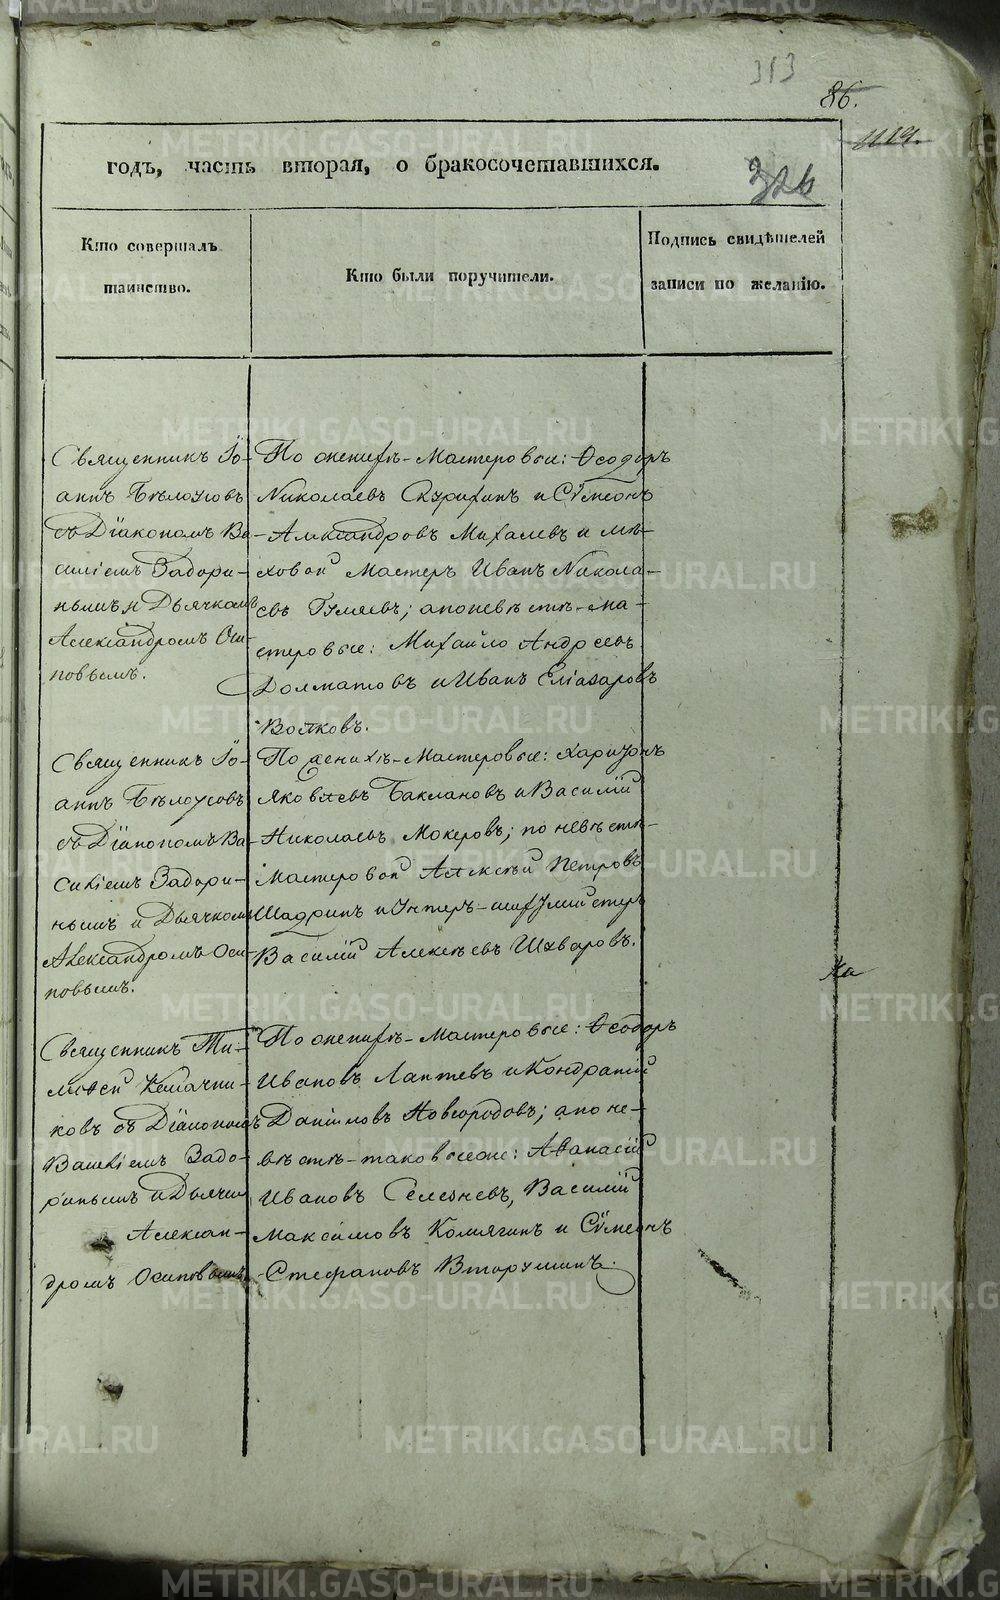 313
86.
1119.
годъ, часть вторая, о бракосочетавшихся.
326
Кто совершалъ
таинство.
Кто были поручители.
Подпись свидѣтелей
записи по желанію.
Священникъ Їо-
аннъ Бѣлоусовъ
съ Дїакономъ Ва-
силіемъ Задори-
нымъ и Дьячкомъ
Александромъ Оси-
повымъ.
По женихѣ-Мастеровые: Ѳеодоръ
Николаевъ Скурихинъ и Сѵмеонъ
Александровъ Михалевъ и мѣ-
ховой Мастеръ Иванъ Никола-
евъ Гуляевъ; а по невѣстѣ-ма-
стеровые: Михайло Андреевъ
Долматовъ и Иванъ Еліазаровъ
Волковъ.
Священникъ Їо-
аннъ Бѣлоусовъ
съ Дїакономъ Ва-
силіемъ Задори-
нымъ и Дьячкомъ
Александромъ Оси-
повымъ.
По женихѣ-Мастеровые: Харитонъ
Яковлевъ Баклановъ и Василій
Николаевъ Мокеровъ; по невѣстѣ-
Мастеровой Алексѣй Петровъ
Шадринъ и Унтеръ-шихтмейстеръ
Василій Алексѣевъ Шваровъ.
Священникъ Ти-
моѳей
ковъ съ Дїакономъ
Василіемъ Задо-
ринымъ и Дьячк
Алексан-
дромъ Осиповымъ
По женихѣ-мастеровые: Ѳеодоръ
Ивановъ Лаптевъ и Кондратій
Даниловъ Новгородовъ; а по не-
вѣстѣ-таковыеже: Аѳанасій
Ивановъ Селезневъ, Василій
Максимовъ Комягинъ и Сѵмеонъ
Стефановъ Вторушинъ.
METRIKI.GASO-URAL.RU